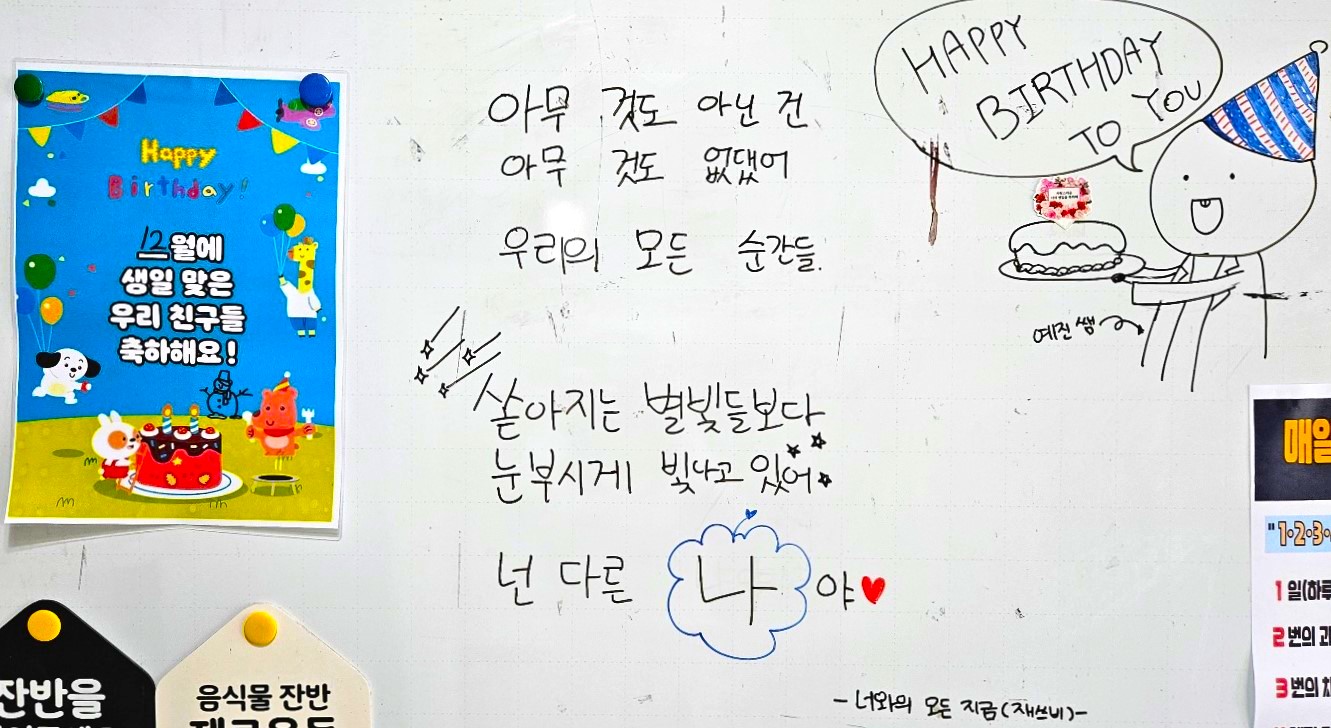 Happy
Birthday!
12월에
생일 맞은
우리 친구들
축하해요!
아무 것도 아닌 건
아무 것도 없댔어
우리의 모든 순간들.
쏟아지는 별빛들보다
눈부시게 빛나고 있어
넌 다른 나야
- 너와의 모든 지금(재쓰비)-
HAPPY
BIRTHDAY
TO YOU
예진쌤
잔반을
음식물 잔반
매일
"1·2·3·
1 일(하루
2 번의 과
3 번의 차